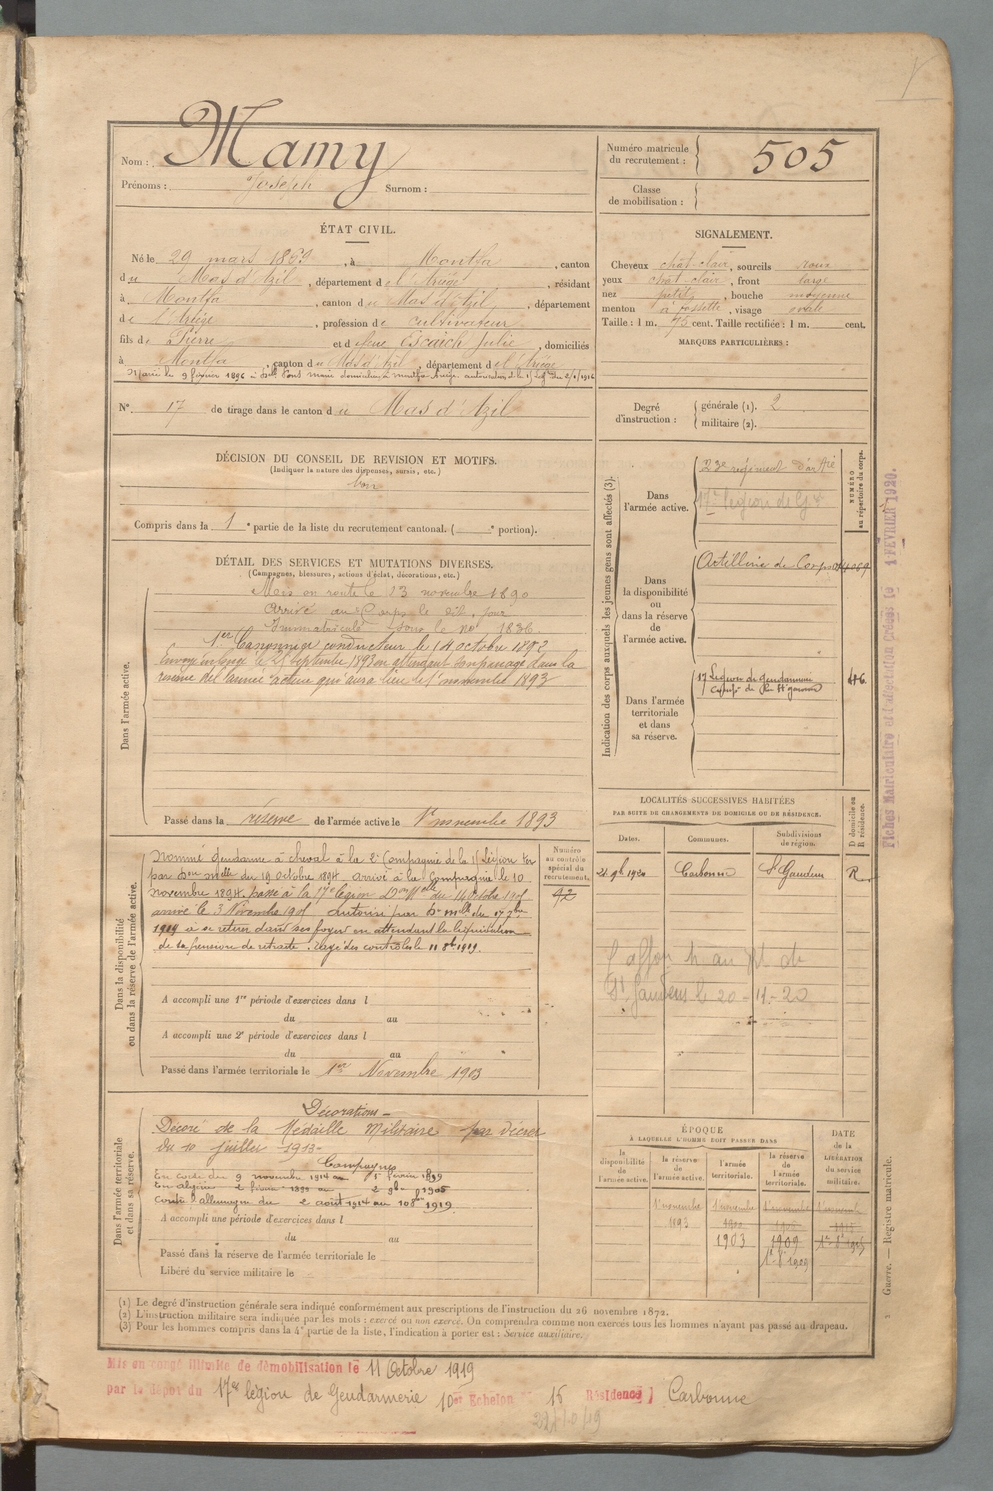 Nom : Mamy
Prénoms : Joseph Surnom :
Numéro matricule du recrutement : 505
Classe de mobilisation :
ÉTAT CIVIL.
Né le 29 mars , à Montfa , canton
du Mas d'Azil , département de l'Ariège , résidant
à Montfa , canton du Mas d'Azil , département
de l'Ariège , profession de cultivateur
fils de Pierre et de feue Escaich Julie , domiciliés
à Montfa , canton du Mas d'Azil , département de l'Ariège
Marié le 9 février 1896 à Delle Pons Marie domiciliée à Montfa Ariège
N° 17 de tirage dans le canton du Mas d'Azil
SIGNALEMENT.
Cheveux chât-clair , sourcils roux
yeux chât-clair , front large
nez petit , bouche moyenne
menton à fossette , visage ovale
Taille : 1 m. 75 cent. Taille rectifiée : 1 m. cent.
MARQUES PARTICULIÈRES :
Degré d'instruction : générale (1). 2
militaire (2).
DÉCISION DU CONSEIL DE REVISION ET MOTIFS.
(Indiquer la nature des dispenses, sursis, etc.)
bon
Compris dans la 1e partie de la liste du recrutement cantonal. ( e portion).
DÉTAIL DES SERVICES ET MUTATIONS DIVERSES.
(Campagnes, blessures, actions d'éclat, décorations, etc.)
Dans l'armée active.
Mis en route le 23 novembre 1890
Arrivé au Corps le dit jour
Immatriculé sous le no 1836
1er Canonnier conducteur le 1 octobre 1892
Envoyé en congé le 21 septembre 1893 en attendant son passage dans la
réserve de l'armée active qui aura lieu le 1er novembre 1893
Passé dans la réserve de l'armée active le 1er novembre 1893
Indication des corps auxquels les jeunes gens sont affectés (3).
NUMÉRO au répertoire du corps.
Dans l'armée active.
23e régiment d'artie
17e légion de Gie
Dans la disponibilité ou dans la réserve de l'armée active.
Artillerie de Corps
Dans l'armée territoriale et dans sa réserve.
17 Légion de Gendarmerie
416
Fiches Matriculaire et d'affectation Créées le 4 FÉVRIER 1920.
LOCALITÉS SUCCESSIVES HABITÉES
PAR SUITE DE CHANGEMENTS DE DOMICILE OU DE RÉSIDENCE.
Dates. Communes. Subdivisions de région. D domicile ou R résidence.
21 9bre 1920 Carbonne St Gaudens R
St Gaudens le 20-11-20
Dans la disponibilité ou dans la réserve de l'armée active.
Numéro au contrôle spécial du recrutement.
92
Nommé gendarme à cheval à la 2e Compagnie de la Légion
par Don melle du 19 octobre 1894 arrivé à la Compagnie le 10
novembre 1894. passé à la 17e légion Don Melle du 14 Octobre 1905
arrivé le 3 Novembre 1905 Autorisé par D. mlle du 17 7bre
1919 à se retirer dans ses foyers en attendant la liquidation
de sa pension de retraite. Rayé des contrôles le 11 8bre 1919.
A accompli une 1re période d'exercices dans l
du au
A accompli une 2e période d'exercices dans l
du au
Passé dans l'armée territoriale le 1er Novembre 1903
Dans l'armée territoriale et dans sa réserve.
Décorations
Décoré de la Médaille Militaire par décret
du 10 juillet 1913
Campagnes
En Algérie
Contre l'Allemagne du 2 août 1914 au 10 8bre 1919
A accompli une période d'exercices dans l
du au
Passé dans la réserve de l'armée territoriale le
Libéré du service militaire le
ÉPOQUE
À LAQUELLE L'HOMME DOIT PASSER DANS
la disponibilité de l'armée active. la réserve de l'armée active. l'armée territoriale. la réserve de l'armée territoriale. DATE de la LIBÉRATION du service militaire.
1 novembre 1 novembre 1 novembre 1 novembre
1893 1900
1903 1909
Guerre. — Registre matricule.
(1) Le degré d'instruction générale sera indiqué conformément aux prescriptions de l'instruction du 26 novembre 1872.
(2) L'instruction militaire sera indiquée par les mots : exercé ou non exercé. On comprendra comme non exercés tous les hommes n'ayant pas passé au drapeau.
(3) Pour les hommes compris dans la 4e partie de la liste, l'indication à porter est : Service auxiliaire.
Mis en congé illimité de démobilisation le 11 Octobre 1919
par le dépôt du 17e légion de Gendarmerie 10e Echelon 15 Résidence Carbonne